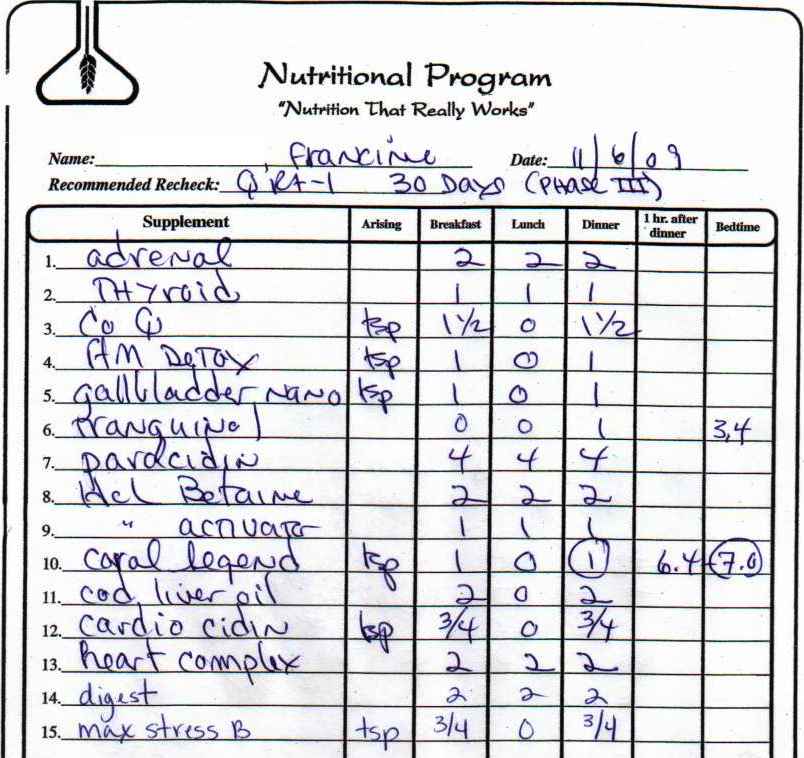 Nutritional Program
"Nutrition That Really Works"
Name: Francine Date: 11/6/09
Recommended Recheck: QRA-1 30 Days (PHASE III)
Supplement Arising Breakfast Lunch Dinner 1 hr. after dinner Bedtime
1. adrenal 2 2 2
2. THyroid 1 1 1
3. Co Q tsp 1 1/2 0 1 1/2
4. HM DeTox tsp 1 0 1
5. gallbladder NANO tsp 1 0 1
6. Tranquinol 0 0 1 3,4
7. paracidin 4 4 4
8. Hcl Betaine 2 2 2
9. " activator 1 1 1
10. coral legend tsp 1 0 1 6.4-7.0
11. cod liver oil 2 0 2
12. cardio cidin tsp 3/4 0 3/4
13. heart complex 2 2 2
14. digest 2 2 2
15. max stress B tsp 3/4 0 3/4